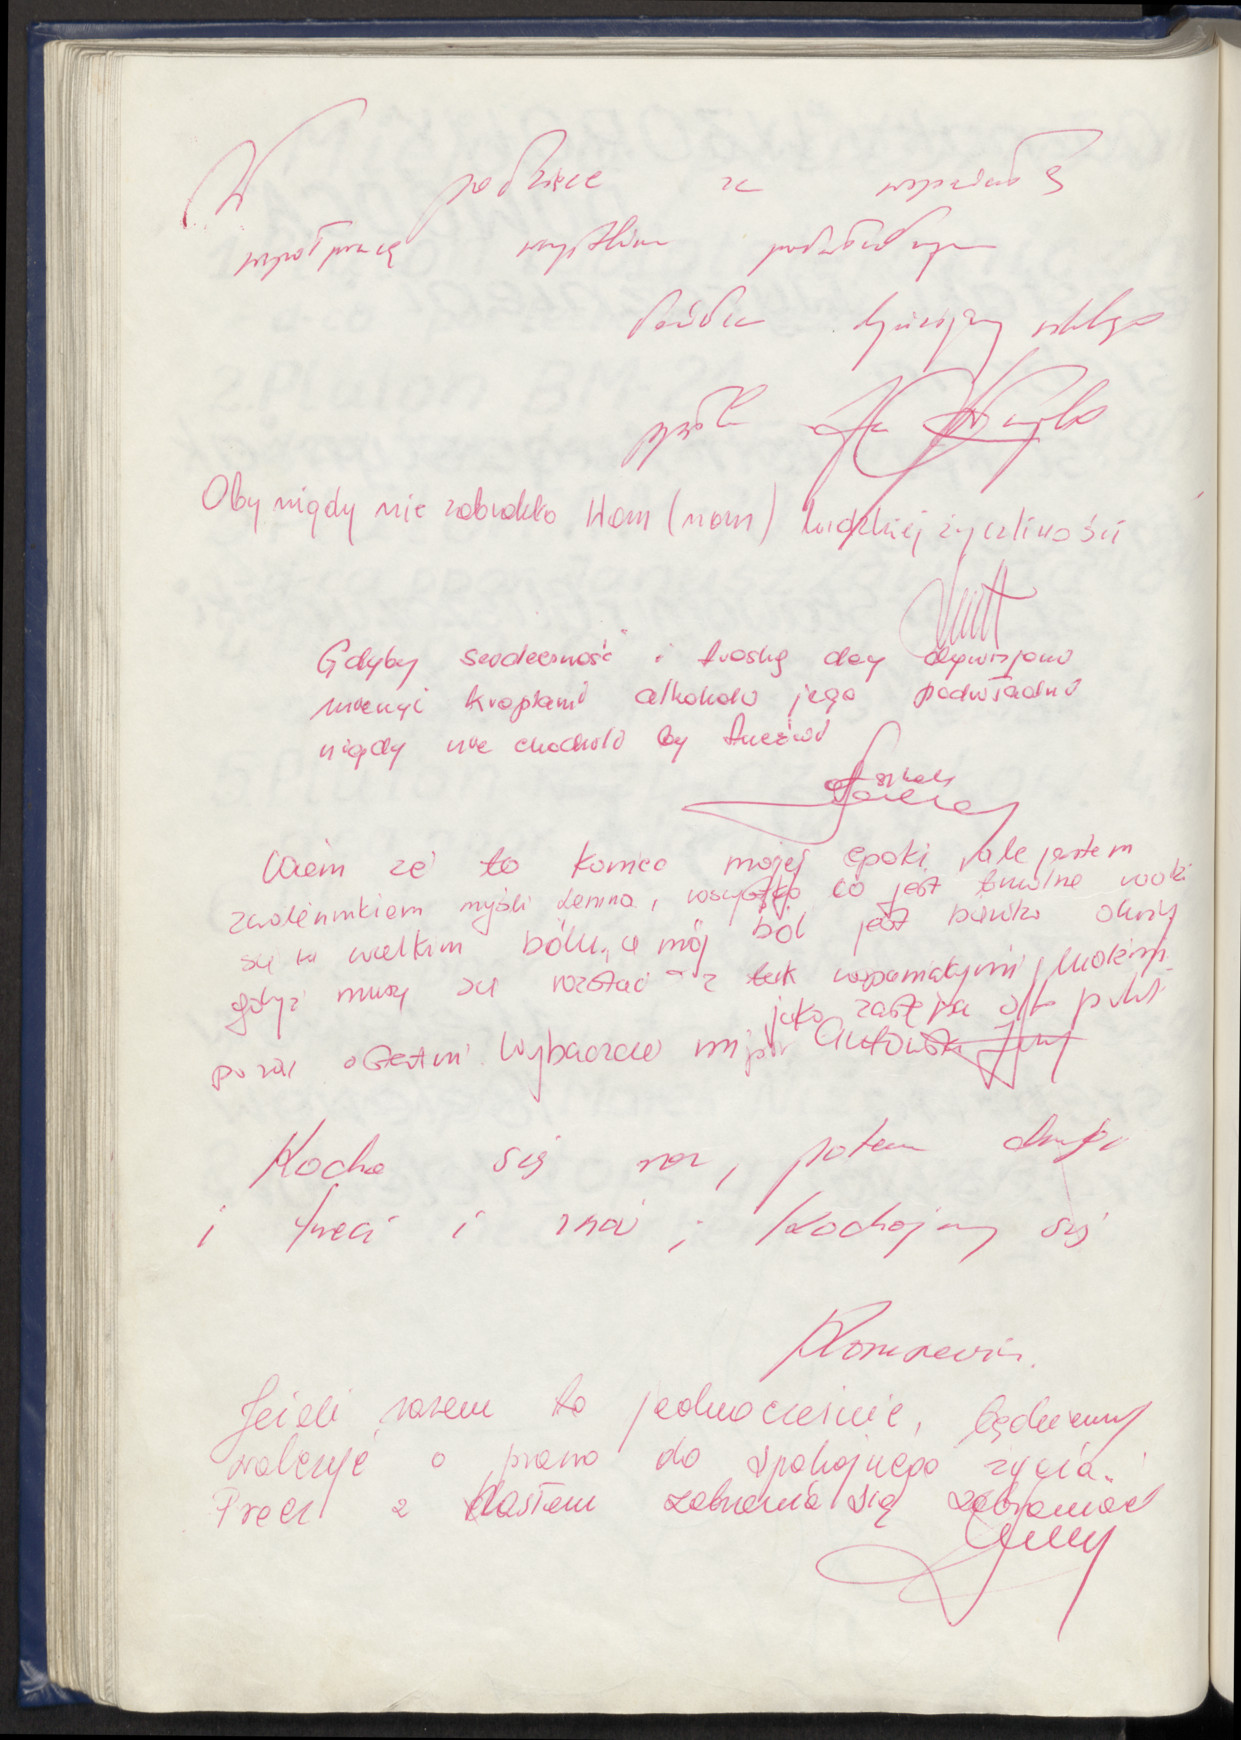 W podzięce za wspaniałą
współpracę wszystkim podwładnym
dowódca dywizjonu
Oby nigdy nie zabrakło Wam (nam) ludzkiej życzliwości
Gdyby serdeczność i troskę dcy dywizjonu
mierzyć kroplami alkoholu jego podwładni
nigdy nie chodzili by trzeźwi
Wiem że to koniec mojej epoki, ale jestem
zwolennikiem myśli Lenina, wszystko co jest
się w wielkim bólu, a mój ból jest bardzo
gdyż muszę się rozstać z tak wspaniałymi ludźmi
jako zastępca
po raz ostatni Wybaczcie mi
Kocha się raz, potem drugi
i trzeci i znów ; Kochajmy się
Jeżeli razem to jednocześnie, będziemy
walczyć o prawo do spokojnego życia.
Precz z hasłem zabrania się zabraniać